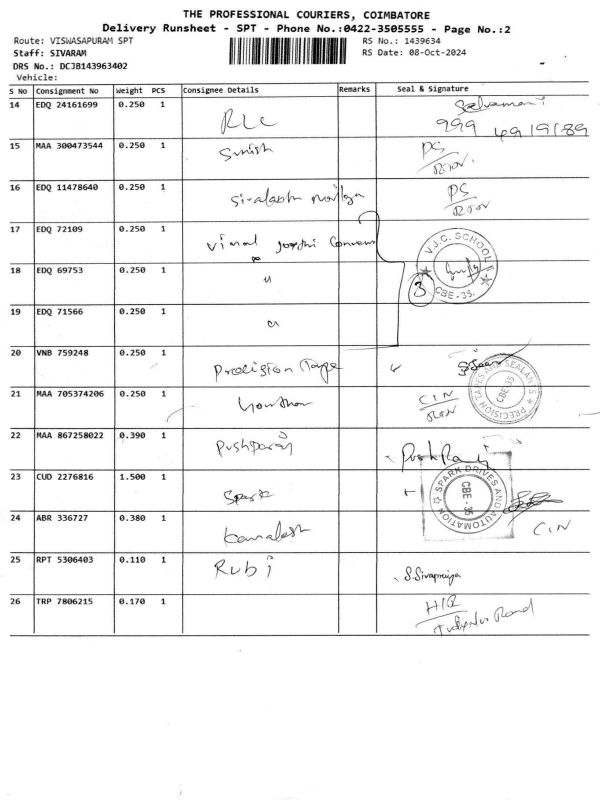 THE PROFESSIONAL COURIERS, COIMBATORE
Delivery Runsheet - SPT - Phone No.:0422-3505555 - Page No.:2
Route: VISWASAPURAM SPT RS No.: 1439634
Staff: SIVARAM RS Date: 08-Oct-2024
DRS No.: DCJB143963402
Vehicle:
S No Consignment No Weight PCS Consignee Details Remarks Seal & Signature
14 EDQ 24161699 0.250 1 RLC Selvamani
999 49 19189
15 MAA 300473544 0.250 1 Sunish DS
16 EDQ 11478640 0.250 1 DS
17 EDQ 72109 0.250 1 Vimal V.J.C. SCHOOL CBE-35.
18 EDQ 69753 0.250 1 " 3
19 EDQ 71566 0.250 1 "
20 VNB 759248 0.250 1 Precision Tape PRECISION TAPES AND SEALANTS CBE-35
21 MAA 705374206 0.250 1 CIN
22 MAA 867258022 0.390 1 Pushparaj PushRaj
23 CUD 2276816 1.500 1 Spark SPARK DRIVES AND AUTOMATION CBE-35
24 ABR 336727 0.380 1 Kamalesh CIN
25 RPT 5306403 0.110 1 Rubi S.Sivapriya
26 TRP 7806215 0.170 1 HIR
Road